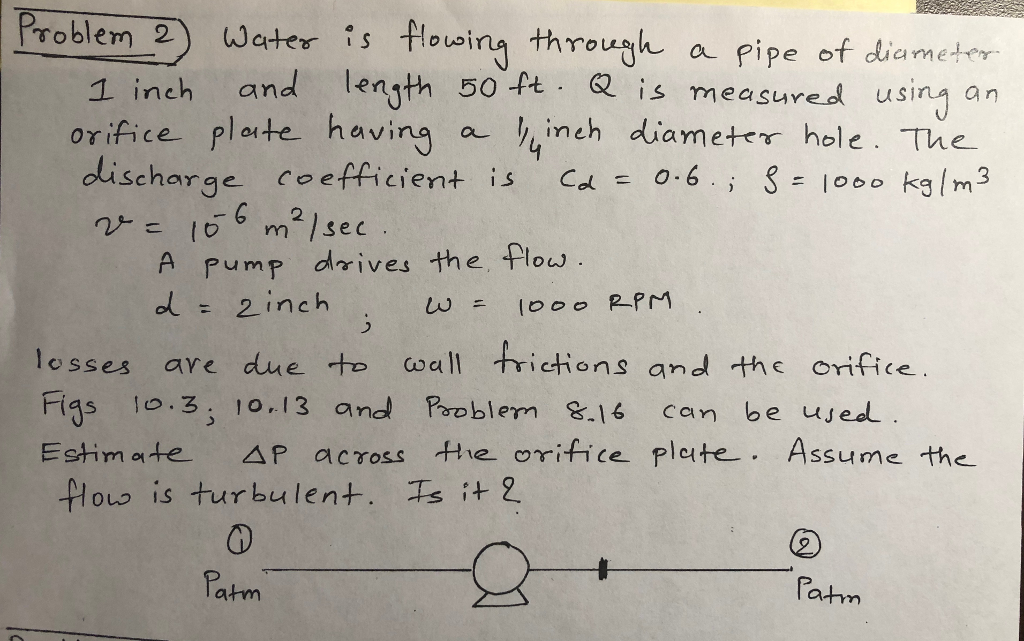 Problem 2) Water is flowing through a pipe of diameter
1 inch and length 50 ft. Q is measured using an
orifice plate having a 1/4 inch diameter hole. The
discharge coefficient is Cd = 0.6.; ρ = 1000 kg/m3
ν = 10-6 m2/sec.
A pump drives the flow.
d = 2 inch ; ω = 1000 RPM.
losses are due to wall frictions and the orifice.
Figs 10.3; 10.13 and Problem 8.16 can be used.
Estimate ΔP across the orifice plate. Assume the
flow is turbulent. Is it?
① ②
Patm Patm